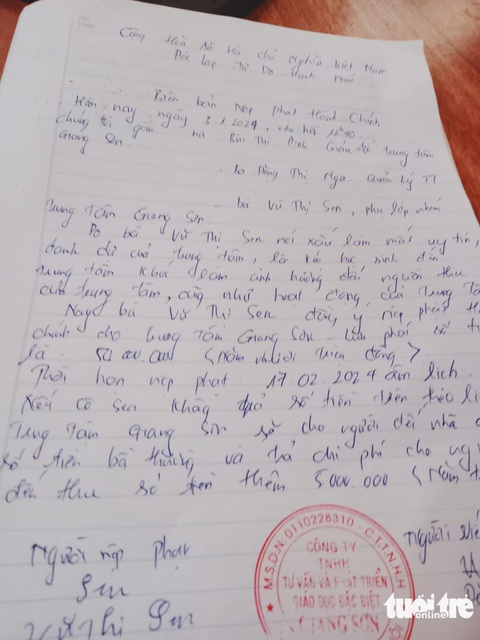 Cộng Hòa Xã Hội Chủ Nghĩa Việt Nam
Độc Lập Tự Do Hạnh Phúc
Biên bản Nộp phạt Hành Chính
Hôm nay ngày 3.1.2024, vào hồi 12h10.
Chúng tôi gồm bà Bùi Thị Định Giám đốc trung tâm
Giang Sơn.
- Bà Đồng Thị Nga Quản Lý TT
- bà Vũ Thị Sen, phụ lớp nhóm
trung tâm Giang Sơn
Do bà Vũ Thị Sen nói xấu làm mất uy tín,
danh dự của trung tâm, học sinh đến
trung tâm khác làm ảnh hưởng đến người thu
của trung tâm, cũng như hoạt động của trung tâ
Nay bà Vũ Thị Sen đồng ý nộp phạt H
chính cho trung tâm Giang Sơn
là: 50.000.000 (Năm mươi triệu đồng)
Thời hạn nộp phạt: 17.02.2024 âm lịch.
Nếu cô Sen không trả số tiền trên theo lị
Trung Tâm Giang Sơn sẽ cho người đến nhà
số tiền bồi thường và trả chi phí cho ng
đến thu số tiền thêm 5000.000 (Năm t
Người nộp phạt
Sen
Vũ Thị Sen
Người viế
M.S.D.N: 0110226310 - C.T.T.N.H.H
CÔNG TY
TNHH
TƯ VẤN VÀ PHÁT TRIỂN
GIÁO DỤC ĐẶC BIỆT
GIANG SƠN
tuổi trẻ
tuổi trẻ